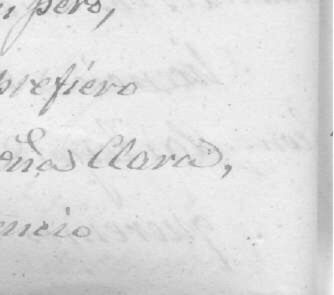 pero,
prefiero
eña Clara,
encio